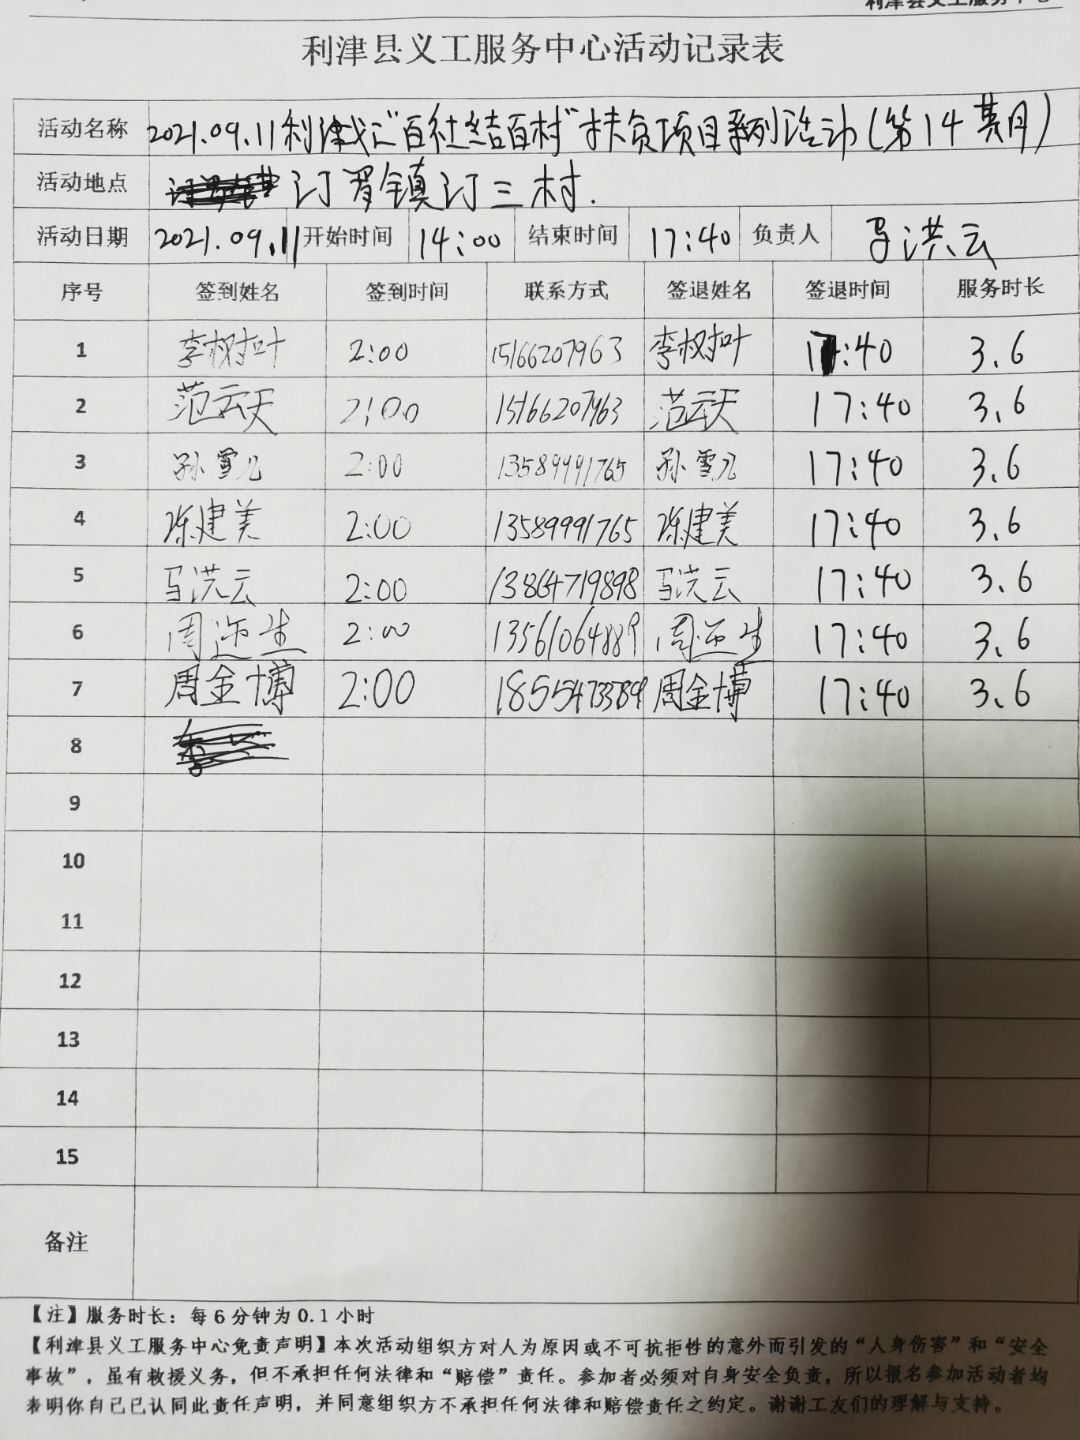 利津县义工服务中心
利津县义工服务中心活动记录表
活动名称 2021.09.11利津义工"百社结百村"扶贫项目系列活动(第14期)
活动地点 汀罗镇汀三村.
活动日期 2021.09.11 开始时间 14:00 结束时间 17:40 负责人 马洪云
序号 签到姓名 签到时间 联系方式 签退姓名 签退时间 服务时长
1 李树叶 2:00 15166207963 李树叶 17:40 3.6
2 范云天 2:00 15166207963 范云天 17:40 3.6
3 孙雪儿 2:00 13589991765 孙雪儿 17:40 3.6
4 陈建美 2:00 13589991765 陈建美 17:40 3.6
5 马洪云 2:00 13864719898 马洪云 17:40 3.6
6 周 生 2:00 13561064889 周 生 17:40 3.6
7 周金博 2:00 18554733789 周金博 17:40 3.6
8
9
10
11
12
13
14
15
备注
【注】服务时长：每6分钟为0.1小时
【利津县义工服务中心免责声明】本次活动组织方对人为原因或不可抗拒性的意外而引发的“人身伤害”和“安全
事故”，虽有救援义务，但不承担任何法律和“赔偿”责任。参加者必须对自身安全负责，所以报名参加活动者均
表明你自己已认同此责任声明，并同意组织方不承担任何法律和赔偿责任之约定。谢谢工友们的理解与支持。